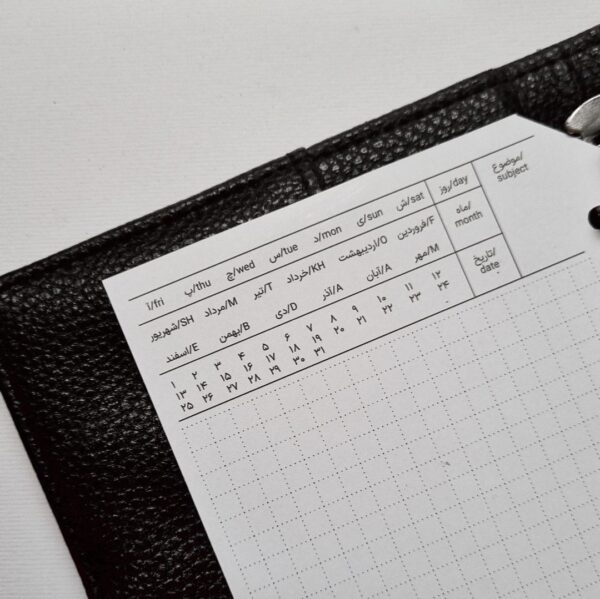 موضوع/
subject
روز/day ش/sat ی/sun د/mon س/tue چ/wed پ/thu آ/fri
ماه/
month
فروردین/F اردیبهشت/O خرداد/KH تیر/T مرداد/M شهریور/SH
مهر/M آبان/A آذر/A دی/D بهمن/B اسفند/E
تاریخ/
date
۱ ۲ ۳ ۴ ۵ ۶ ۷ ۸ ۹ ۱۰ ۱۱ ۱۲
۱۳ ۱۴ ۱۵ ۱۶ ۱۷ ۱۸ ۱۹ ۲۰ ۲۱ ۲۲ ۲۳ ۲۴
۲۵ ۲۶ ۲۷ ۲۸ ۲۹ ۳۰ ۳۱